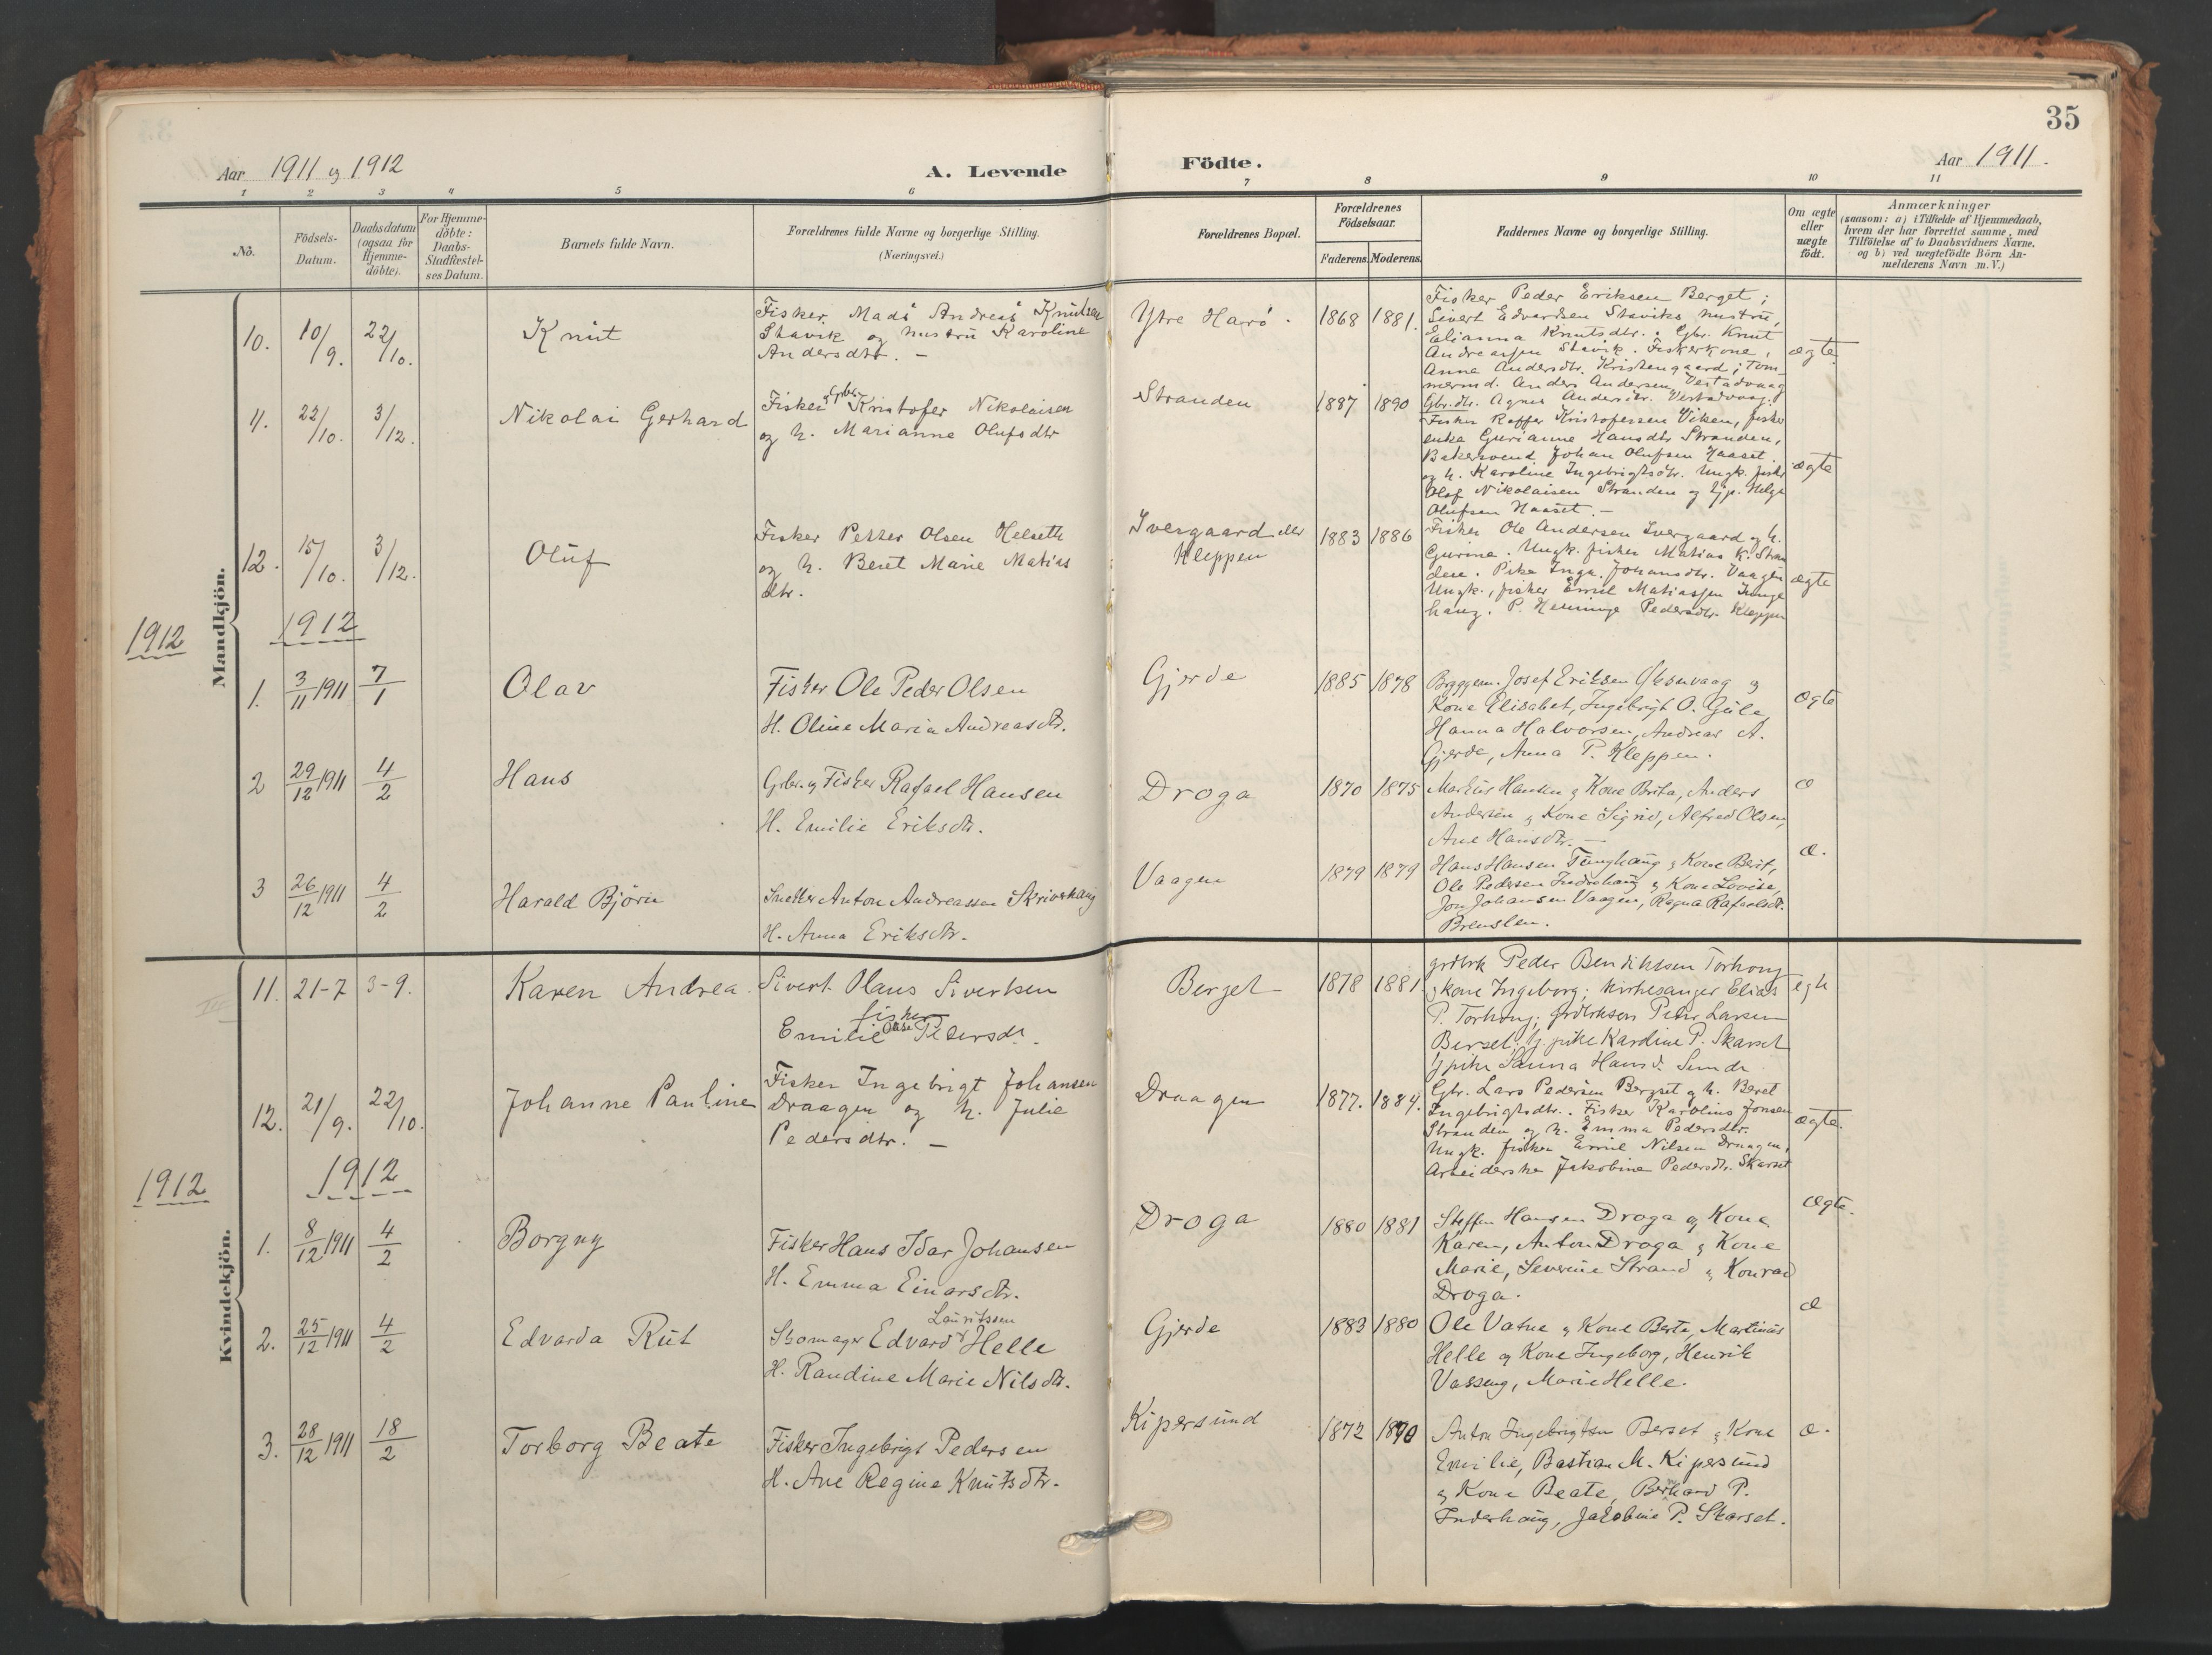 35
Aar 1911 og 1912
A. Levende
Födte.
Aar 1911.
1 2 3 4 5 6 7 8 9 10 11
No.
Födsels-
Datum.
Daabsdatum
(ogsaa for
Hjemme-
döbte).
For Hjemme-
döbte:
Daabs-
Stadfæstel-
ses Datum.
Barnets fulde Navn.
Forældrenes fulde Navne og borgerlige Stilling.
(Næringsvei.)
Forældrenes Bopæl.
Forældrenes
Födselsaar.
Faderens. Moderens.
Faddernes Navne og borgerlige Stilling.
Om ægte
eller
uægte
födt.
Anmærkninger
(saasom: a) i Tilfælde af Hjemmedaab,
hvem der har forrettet samme, med
Tilföielse af to Daabsvidners Navne.
og b) ved uægtefödte Börn An-
melderens Navn m. V.)
Mandkjön.
10. 10/9. 22/10.
Knut
Fisker Mads Andreas Knutsen
Stavik og hustru Karoline
Andersdtr. —
Ytre Harö.
1868 1881.
Fisker Peder Eriksen Berget;
Sivert Edvardsen Staviks hustru,
Elianna Knutsdtr. Gbr. Knut
Andreassen Stavik. Fiskerkone,
Anna Andersdtr. Kristengaard; Töm-
mermd. Anders Andersen Vestadvaag
Gbr. dtr. Agnes Andersdtr. Vestadvaag.
ægte.
11. 22/10. 3/12.
Nikolai Gerhard
Fisker og Gbr. Kristofer Nikolaisen
og h. Marianne Olufsdtr
Stranden
1887 1890
Fisker Roffer Kristofersen Viken, fisker
enke Gurianne Hansdtr Stranden,
Bakersvend Johan Olufsen Haaset
og h. Karoline Ingebrigtsdtr. Ungk. fisker
Olaf Nikolaisen Stranden og Tjp. Helga
Olufsen Haaset. —
ægte
12. 15/10. 3/12.
Oluf
Fisker Petter Olsen Helseth
og h. Beret Marie Matias
dtr.
Ivergaard eller
Kleppen
1883 1886
Fisker Ole Andersen Ivergaard og h.
Gurine. Ungk. fisker Matias K. Stran
dere. Pike Inga Johansdtr. Vaagen
Ungk., fisker Emil Matiassen Tunge
haug. P. Henninge Pedersdtr. Kleppen
ægte
1912
1912
1. 3/11 1911 7/1
Olav
Fisker Ole Peder Olsen
H. Oline Maria Andreasdtr.
Gjerde
1885 1878
Byggm. Josef Eriksen Stenvaag og
Kone Elisabet, Ingebrigt O. Gule,
Hanna Halvorsen, Andreas A.
Gjerde, Anna P. Kleppen.
ægte
2 29/12 1911 4/2
Hans
Gbr. og Fisker Rafael Hansen
H. Emilie Eriksdtr.
Droga
1870 1875
Markus Hansen og Kone Brita, Anders
Andersen og Kone Sigrid, Alfred Olsen,
Ane Hansdtr. —
æ
3 26/12 1911 4/2
Harald Björn
Snekker Anton Andreassen Skrivehaug
H. Anna Eriksdtr.
Vaagen
1879 1879
Hans Hansen Tunghaug og Kone Berit,
Ole Pedersen Indrehaug og Kone Lovise,
Jon Johansen Vaagen, Ragna Rafaelsdtr.
Brenslen.
æ.
Kvindekjön.
11. 21-7 3-9.
Karen Andrea.
Sivert Olaus Sivertsen
fisker
Emilie Olise Petersdr.
Berset
1878 1881
grdbrk Peder Bendiktsen Torhong
og kone Ingeborg; kirkesanger Elias
P. Torhong; grdbrksøn Peter Larsen
Berset, tj. pike Karoline P. Skarset
tj pike Sanna Hansd. Sunde
egte
12. 21/9. 22/10.
Johanne Pauline
Fisker Ingebrigt Johansen
Draagen og h. Julie
Pedersdtr. —
Draagen
1877. 1884.
Gbr. Lars Pedersen Bergset og h. Beret
Ingebrigtsdtr. Fisker Karolius Jonsen
Stranden og h. Emma Pedersdtr.
Ungk. fisker Emil Nilsen Draagen,
Arbeiderske Jakobine Pedersdtr. Skarset
ægte.
1912
1912
1. 8/12 1911 4/2
Borgny
Fisker Hans Idar Johansen
H. Emma Einarsdtr.
Droga
1880 1881
Steffen Hansen Droga og Kone
Karen, Anton Droga og Kone
Marie, Severine Strand og Konrad
Droga.
Ægte.
2. 25/12 1911 4/2
Edvarda Rut
Lauritssen
Skomager Edvard Helle
H. Randine Marie Nilsdtr.
Gjerde
1883 1880
Ole Vatne og Kone Berte, Martinus
Helle og Kone Ingeborg, Henrik
Vasseng, Marie Helle.
æ
3. 28/12 1911 18/2
Torborg Beate
Fisker Ingebrigt Pedersen
H. Ane Regine Knutsdtr.
Kipersund
1872 1870
Anton Ingebrigtsen Berset og Kone
Emilie, Bastian M. Kipersund
og Kone Beate, Bernhard P.
Inderhaug, Jakobine P. Skarset.
æ.